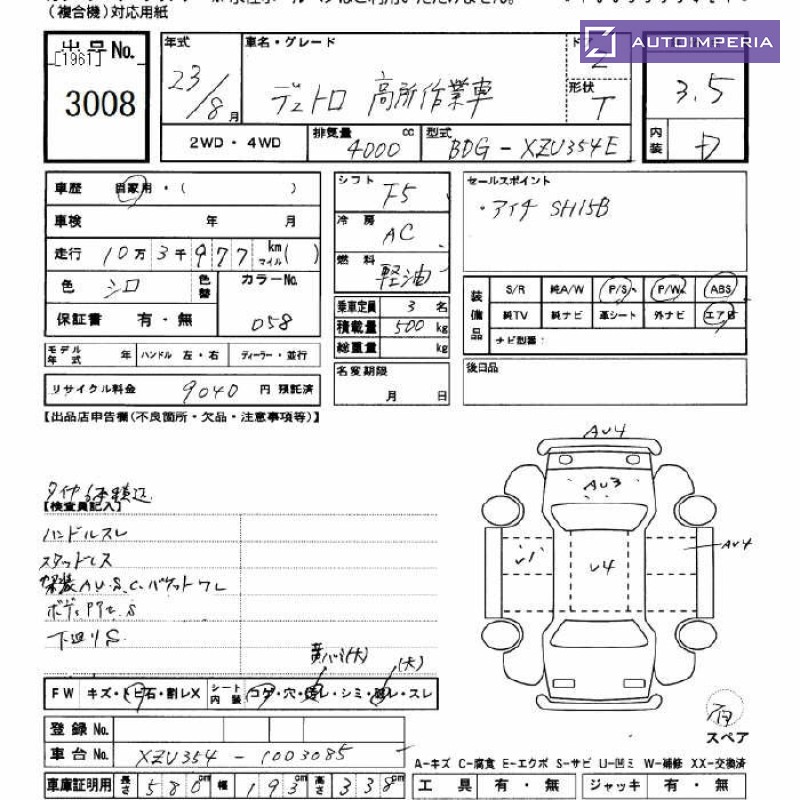 (複合機)対応用紙
AUTOIMPERIA
出品No.
[1961]
3008
年式
23/8月
車名・グレード
デュトロ 高所作業車
ドア
2
形状
T
3.5
内装
D
2WD・4WD
排気量 4000 cc
型式 BDG-XZU354E
車歴 自家用・( )
車検 年 月
走行 10万3千977 km マイル( )
色 シロ 色替
カラーNo. 058
保証書 有・無
モデル年式 年 ハンドル 左・右 ディーラー・並行
リサイクル料金 9040 円 預託済
シフト F5
冷房 AC
燃料 軽油
乗車定員 3 名
積載量 500 kg
総重量 kg
名変期限
月 日
セールスポイント
・アイチ SH15B
装備品
S/R 純A/W P/S P/W ABS
純TV 純ナビ 革シート 外ナビ エアB
ナビ型番:
後日品
【出品店申告欄(不良箇所・欠品・注意事項等)】
タイヤ6本積込
【検査員記入】
ハンドルスレ
スタッドレス
架装AU.S.C.バケットワレ
下廻りS
AU4
AU3
U4
AU4
(大)
FW キズ・トビ石・割レX シート内装 コゲ・穴・シミ・スレ
登録No.
車台No. XZU354-1003085
車庫証明用 長さ 580cm 幅 193cm 高さ 338cm
スペア
A-キズ C-腐食 E-エクボ S-サビ U-凹ミ W-補修 XX-交換済
工具 有・無 ジャッキ 有・無